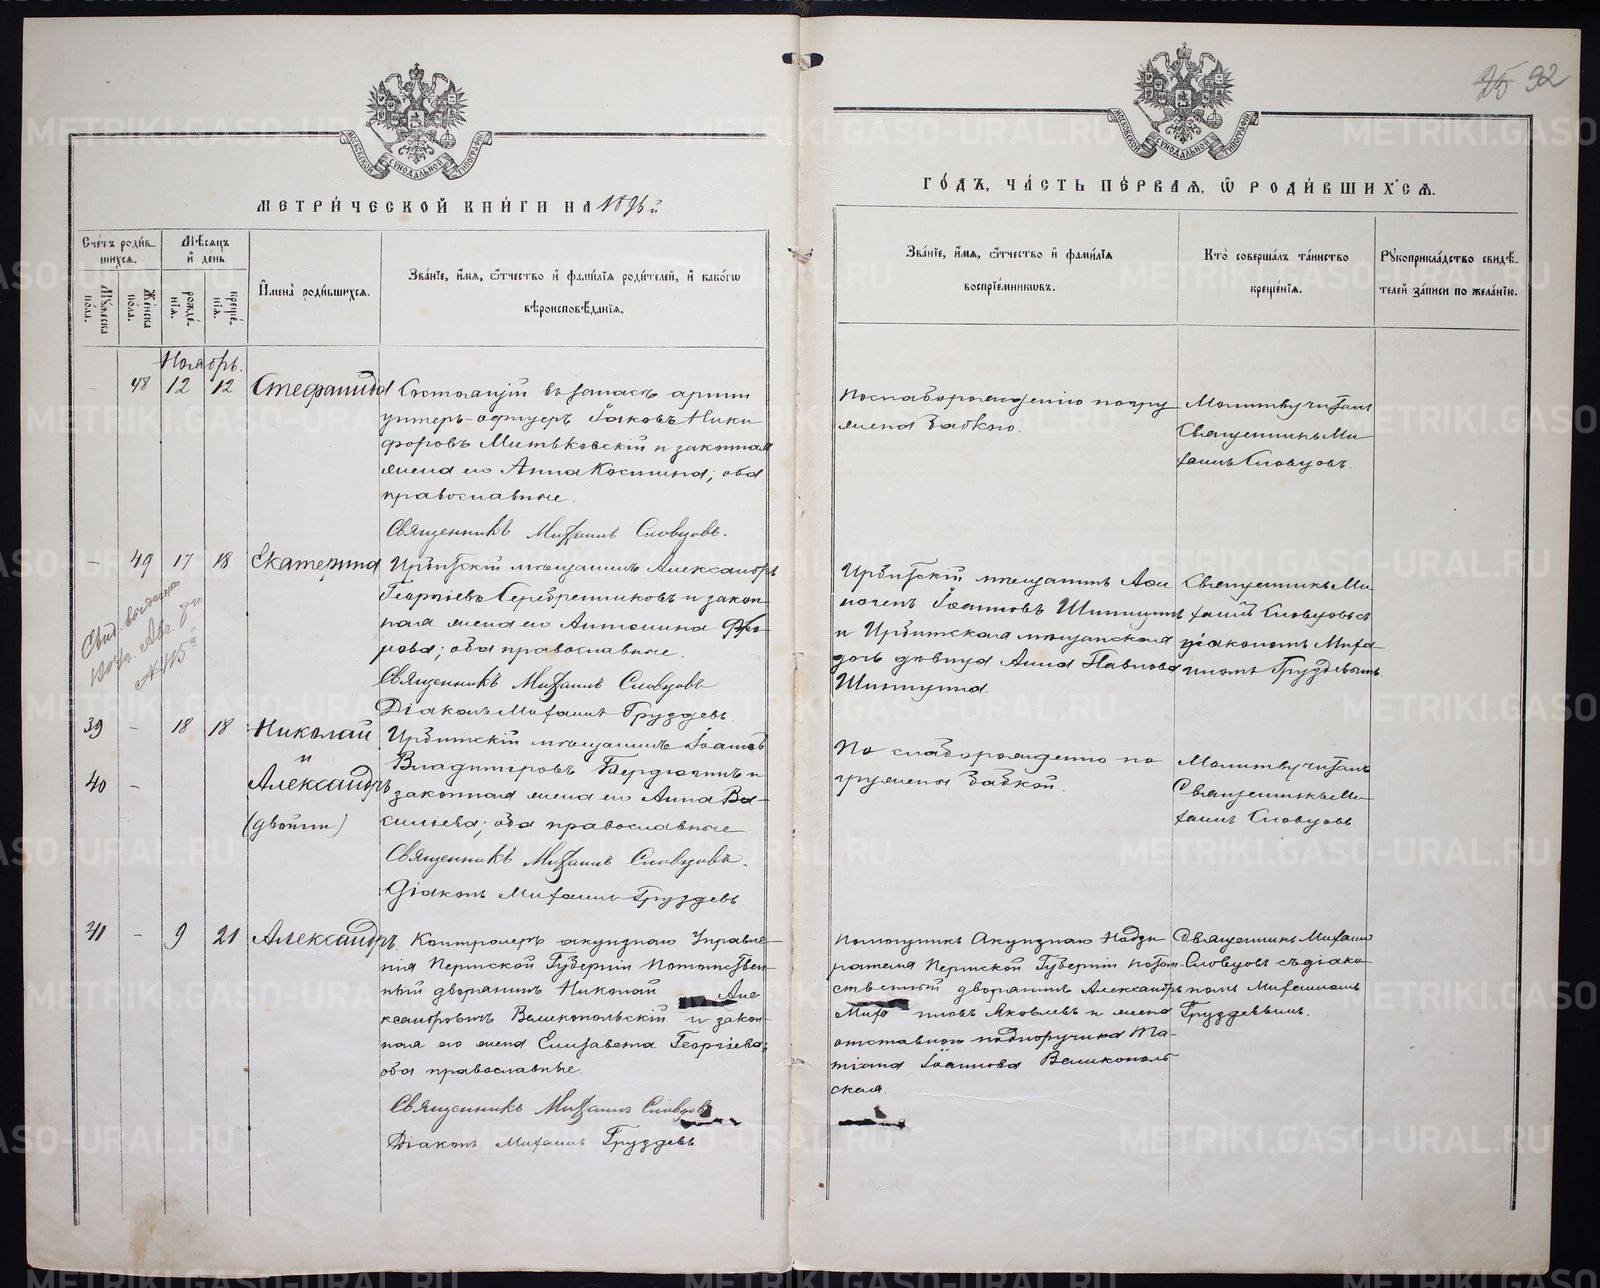 25 92
МЕТРИЧЕСКОЙ КНИГИ НА 1896й
ГОДЪ, ЧАСТЬ ПЕРВАЯ, Ѿ РОДИВШИХСЯ.
Счетъ родившихся.
Мѣсяцъ и день
Мужеска пола.
Женска пола.
рожденія.
крещенія.
Имена родившихся.
Званіе, имя, отчество и фамилія родителей, и какогѡ
вѣроисповѣданія.
Званіе, имя, отчество и фамилія
воспріемниковъ.
Кто совершалъ таинство
крещенія.
Рукоприкладство свидѣ-
телей записи по желанію.
Ноябрь.
- 48 12 12 Стефанида
Состоящій въ запасѣ арміи
унтеръ-офицеръ Іаковъ Ники
форовъ Митьковскій и законная
жена его Анна Костина; оба
православные.
Священникъ Михаилъ Словцовъ.
По слаборожденію погру
жена бабкою.
Молитву читалъ
Священникъ Ми-
хаилъ Словцовъ.
- 49 17 18 Екатерина
Ирбитскій мѣщанинъ Александръ
Георгіевъ Серебренниковъ и закон-
ная жена его Антонина
рова; оба православные.
Священникъ Михаилъ Словцовъ
Діаконъ Михаилъ Груздевъ.
Свид. выдано
№ 115
Ирбитскій мѣщанинъ
Іоанновъ Шишкинъ
и Ирбитская мѣщанская
дочь дѣвица Анна Павлова
Шишкина.
Священникъ Ми-
хаилъ Словцовъ съ
діакономъ Миха-
иломъ Груздевымъ
39 - 18 18 Николай
и
40 - Александръ
(двойни)
Ирбитскій мѣщанинъ Іоаннъ
Владиміровъ Бердюгинъ и
законная жена его Анна Ва-
сильева; оба православные
Священникъ Михаилъ Словцовъ.
Діаконъ Михаилъ Груздевъ
По слаборожденію по
гружены бабкой.
Молитву читалъ
Священникъ Ми-
хаилъ Словцовъ
41 - 9 21 Александръ
Контролеръ акцизнаго Управле-
нія Пермской Губерніи потомствен-
ный дворянинъ Николай Але
ксандровичъ Великопольскій и закон-
ная его жена Елизавета Георгіева,
оба православные.
Священникъ Михаилъ Словцовъ
Діаконъ Михаилъ Груздевъ
Помощникъ Акцизнаго Надзи-
рателя Пермской Губерніи потом-
ственный дворянинъ Александръ
Миха ловъ Яковлевъ и жена
отставного подпоручика Та-
тіана Іоаннова Великополь
ская.
Священникъ Михаилъ
Словцовъ съ діако-
номъ Михаиломъ
Груздевымъ.
METRIKI.GASO-URAL.RU